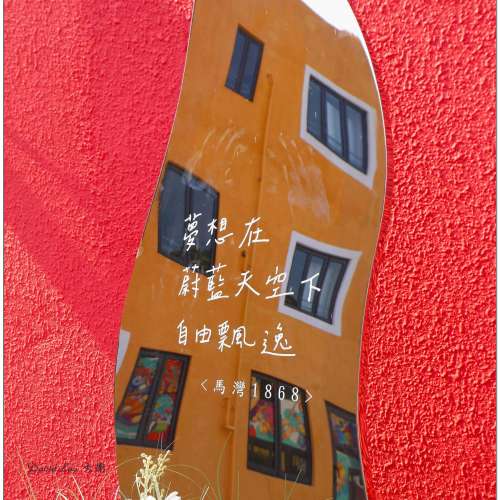 夢想在
蔚藍天空下
自由飄逸
<馬灣1868>